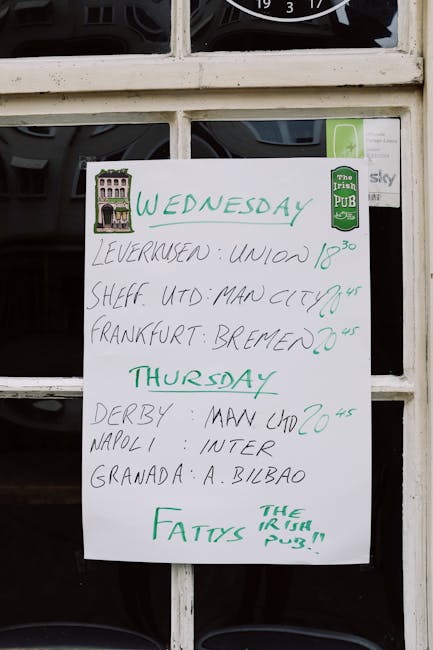 19 3 17
The Irish PUB
sky
WEDNESDAY
LEVERKUSEN : UNION 18 30
SHEFF. UTD : MAN CITY 20 45
FRANKFURT : BREMEN 20 45
THURSDAY
DERBY : MAN UTD 20 45
NAPOLI : INTER
GRANADA : A. BILBAO
FATTYS THE IRISH PUB!!